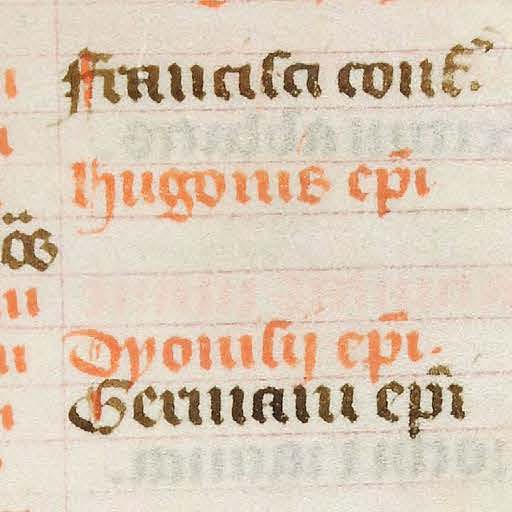 Francisci conf.
Hugonis epi
Dyonisij epi.
Germani epi